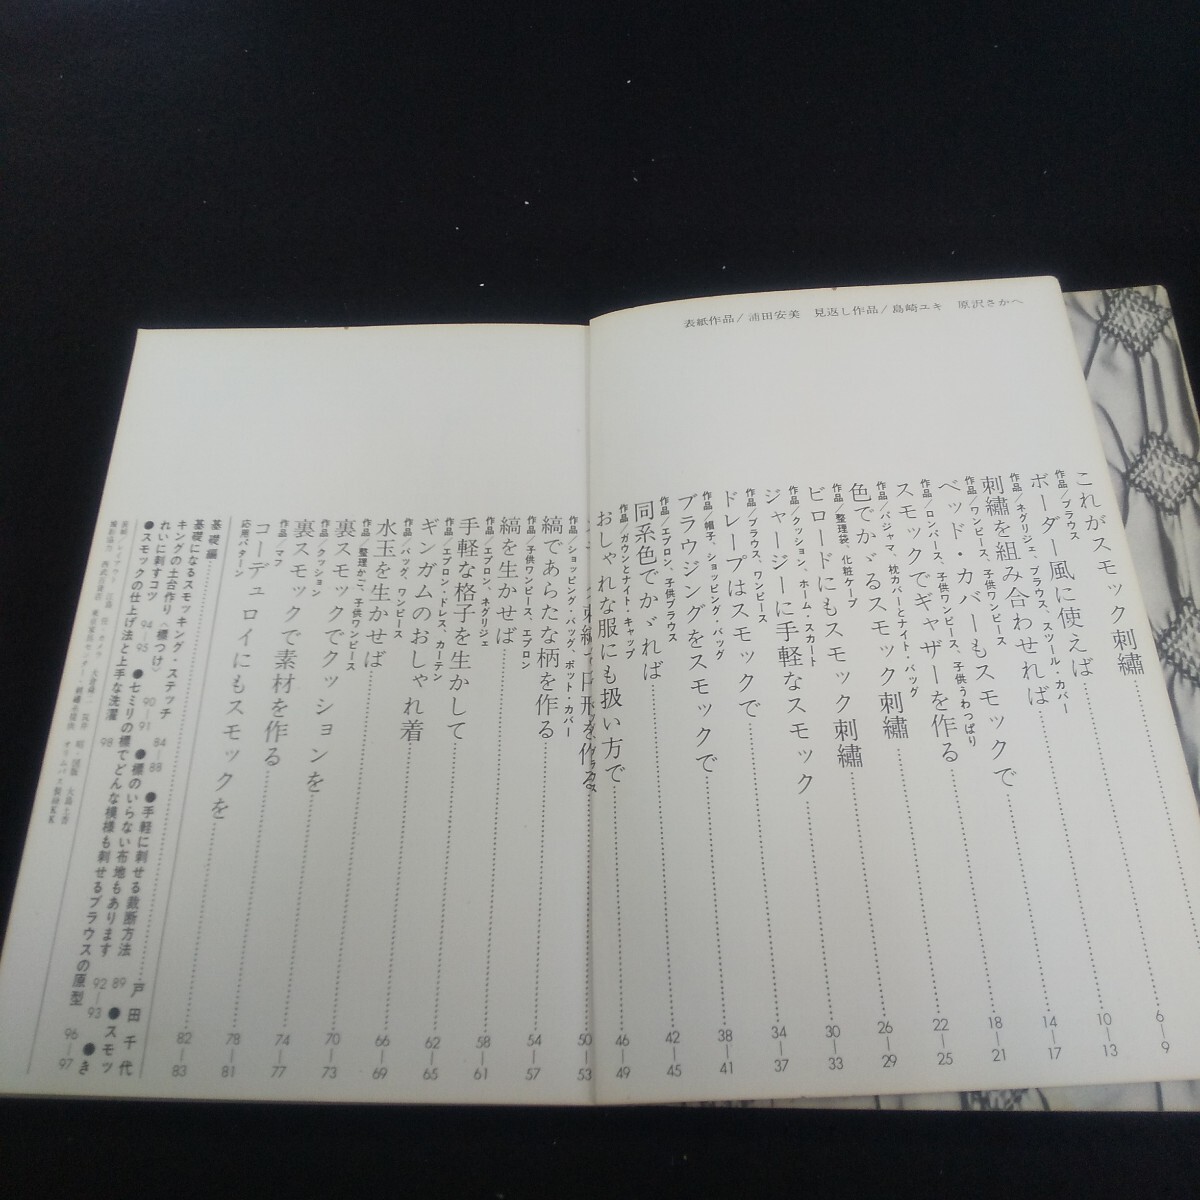 表紙作品/浦田安美 見返し作品/島崎ユキ 原沢さかへ
これがスモック刺繡 6―9
作品/ブラウス
ボーダー風に使えば 10―13
作品/ネグリジェ、ブラウス、スツール・カバー
刺繡を組み合わせれば 14―17
作品/ワンピース、子供ワンピース
ベッド・カバーもスモックで 18―21
作品/ロンパース、子供ワンピース、子供うわっぱり
スモックでギャザーを作る 22―25
作品/パジャマ、枕カバーとナイト・バッグ
色でかゞるスモック刺繡 26―29
作品/整理袋、化粧ケープ
ビロードにもスモック刺繡 30―33
作品/クッション、ホーム・スカート
ジャージーに手軽なスモック 34―37
作品/ブラウス、ワンピース
ドレープはスモックで 38―41
作品/帽子、ショッピング・バッグ
ブラウジングをスモックで 42―45
作品/エプロン、子供ブラウス
同系色でかゞれば 46―49
作品/ガウンとナイト・キャップ
おしゃれな服にも扱い方で 50―53
作品/ショッピング・バッグ、ポット・カバー
縞であらたな柄を作る 54―57
作品/子供ワンピース、エプロン
縞を生かせば 58―61
作品/エプロン、ネグリジェ
手軽な格子を生かして 62―65
作品/エプロン・ドレス、カーテン
ギンガムのおしゃれ着 66―69
作品/バッグ、ワンピース
水玉を生かせば 70―73
作品/整理かご、子供ワンピース
裏スモックでクッションを 74―77
作品/クッション
裏スモックで素材を作る 78―81
作品/マフ
コーデュロイにもスモックを 82―83
応用パターン
基礎編 戸田千代
基礎になるスモッキング・ステッチ 84―88 ●手軽に刺せる裁断方法 89 ●スモッ
キングの土台作り〈標つけ〉 90―91 ●標のいらない布地もあります 92―93 ●き
れいに刺すコツ 94―95 ●七ミリの標でどんな模様も刺せるブラウスの原型 96―97
●スモックの仕上げ法と上手な洗濯 98